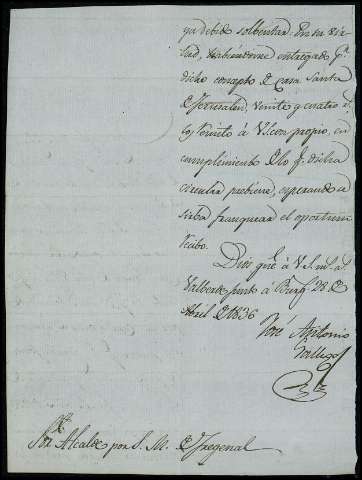 ya debido solbentar. En su vir-
tud, habiendome entregado p.r
dicho consepto de casa Santa
de Jerusalen, veinte y cuatro r.s
los remito à VS con propio, en
cumplimiento de lo q.e dicha
circular prebiene, esperando se
sirba franquear el oportuno
recibo.
Dios gue. à V.S. m.s a.s
Valberde junto à Burg.s 28 de
Abril de 1836
José Antonio
Gallego
Sor. Alcalde por S. M. de Fregenal